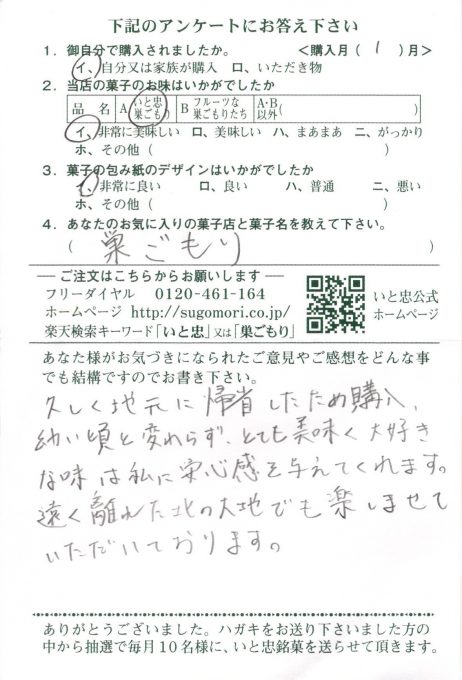 下記のアンケートにお答え下さい
1. 御自分で購入されましたか。 <購入月( 1 )月>
イ、自分又は家族が購入 ロ、いただき物
2. 当店の菓子のお味はいかがでしたか
品 名 A いと忠巣ごもり B フルーツな巣ごもりたち A・B以外( )
イ、非常に美味しい ロ、美味しい ハ、まあまあ ニ、がっかり
ホ、その他 ( )
3. 菓子の包み紙のデザインはいかがでしたか
イ、非常に良い ロ、良い ハ、普通 ニ、悪い
ホ、その他 ( )
4. あなたのお気に入りの菓子店と菓子名を教えて下さい。
( 巣ごもり )
ご注文はこちらからお願いします
フリーダイヤル 0120-461-164
ホームページ http://sugomori.co.jp/
楽天検索キーワード「いと忠」又は「巣ごもり」
いと忠公式
ホームページ
あなた様がお気づきになられたご意見やご感想をどんな事
でも結構ですのでお書き下さい。
久しく地元に帰省したため購入、
幼い頃と変わらず、とても美味く大好き
な味は私に安心感を与えてくれます。
遠く離れた北の大地でも楽しませて
いただいております。
ありがとうございました。ハガキをお送り下さいました方の
中から抽選で毎月10名様に、いと忠銘菓を送らせて頂きます。